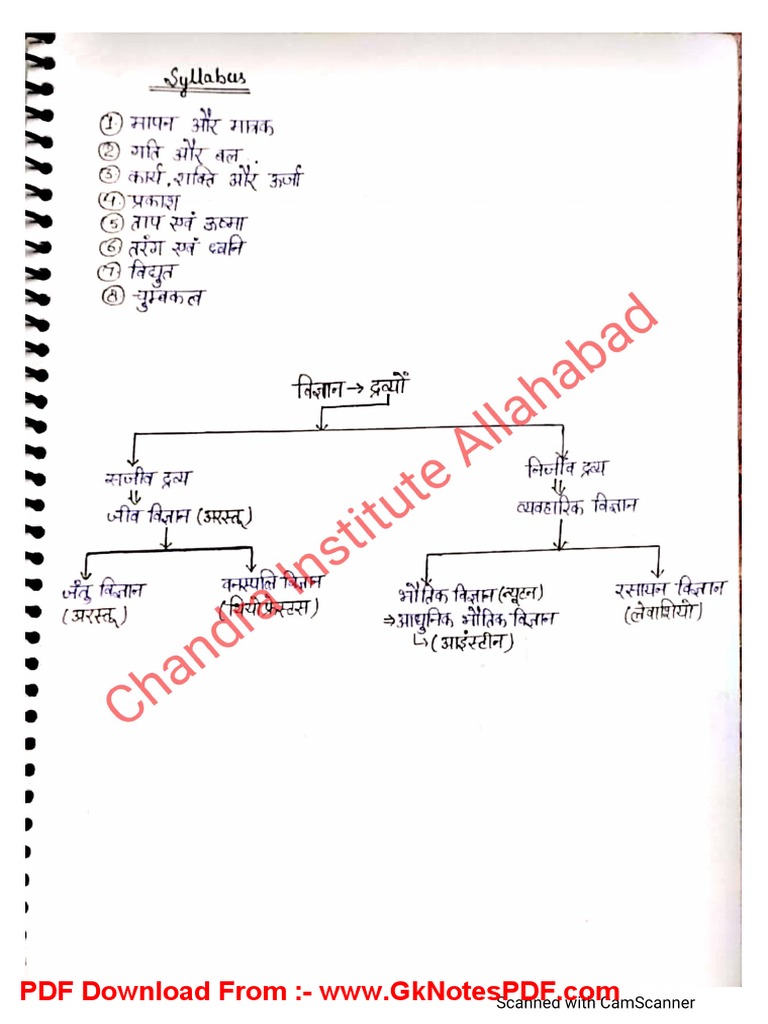 Syllabus
① मापन और मात्रक
② गति और बल
③ कार्य, शक्ति और ऊर्जा
④ प्रकाश
⑤ ताप एवं ऊष्मा
⑥ तरंग एवं ध्वनि
⑦ विद्युत
⑧ चुम्बकत्व
विज्ञान → द्रव्यों
सजीव द्रव्य
निर्जीव द्रव्य
⇓
⇓
जीव विज्ञान (अरस्तू)
व्यवहारिक विज्ञान
जंतु विज्ञान
(अरस्तू)
वनस्पति विज्ञान
(थियोफ्रेस्टस)
भौतिक विज्ञान (न्यूटन)
⇒ आधुनिक भौतिक विज्ञान
↳ (आइंस्टीन)
रसायन विज्ञान
(लेवाशियो)
Chandra Institute Allahabad
PDF Download From :- www.GkNotesPDF.com
Scanned with CamScanner